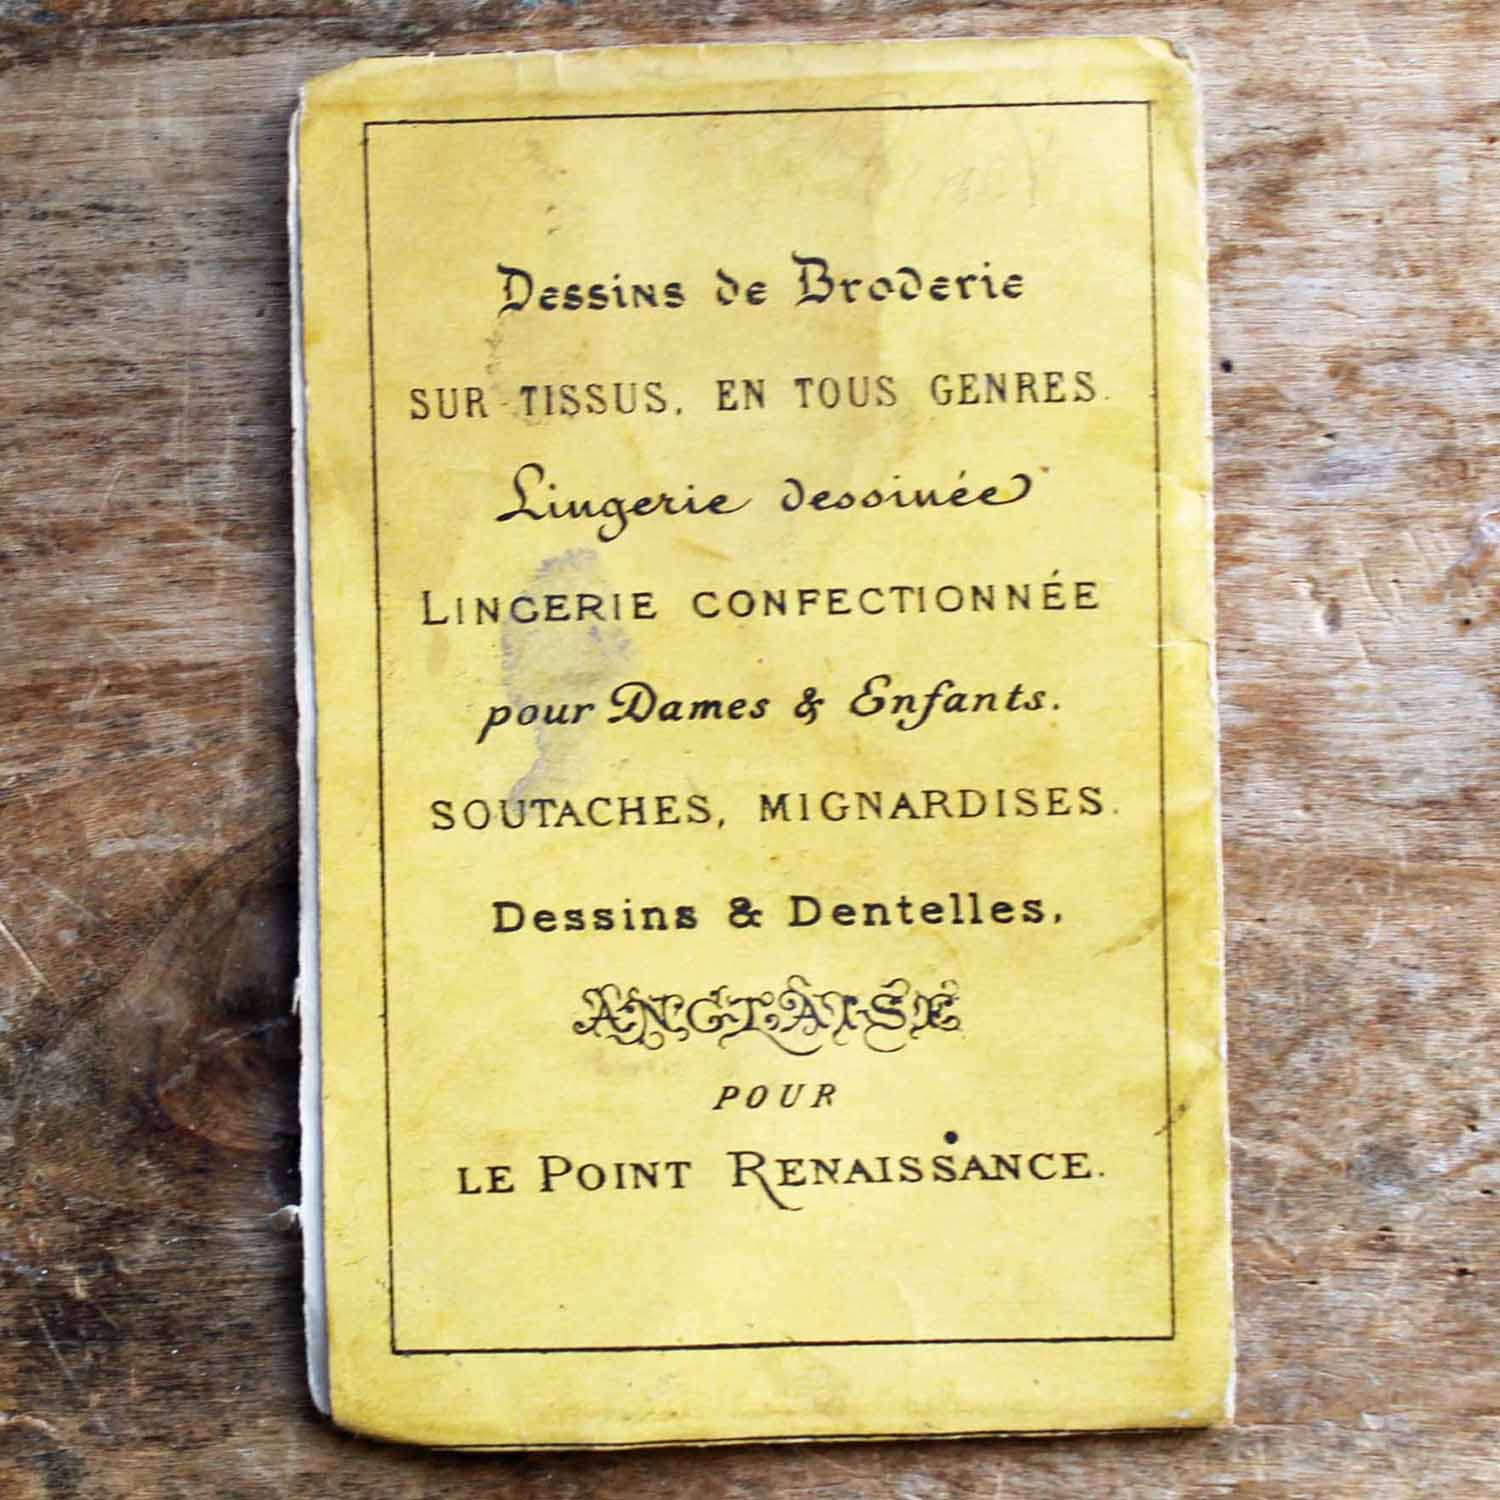 Dessins de Broderie
SUR TISSUS, EN TOUS GENRES.
Lingerie dessinée
LINGERIE CONFECTIONNÉE
pour Dames & Enfants.
SOUTACHES, MIGNARDISES.
Dessins & Dentelles,
ANGLAISE
POUR
LE POINT RENAISSANCE.